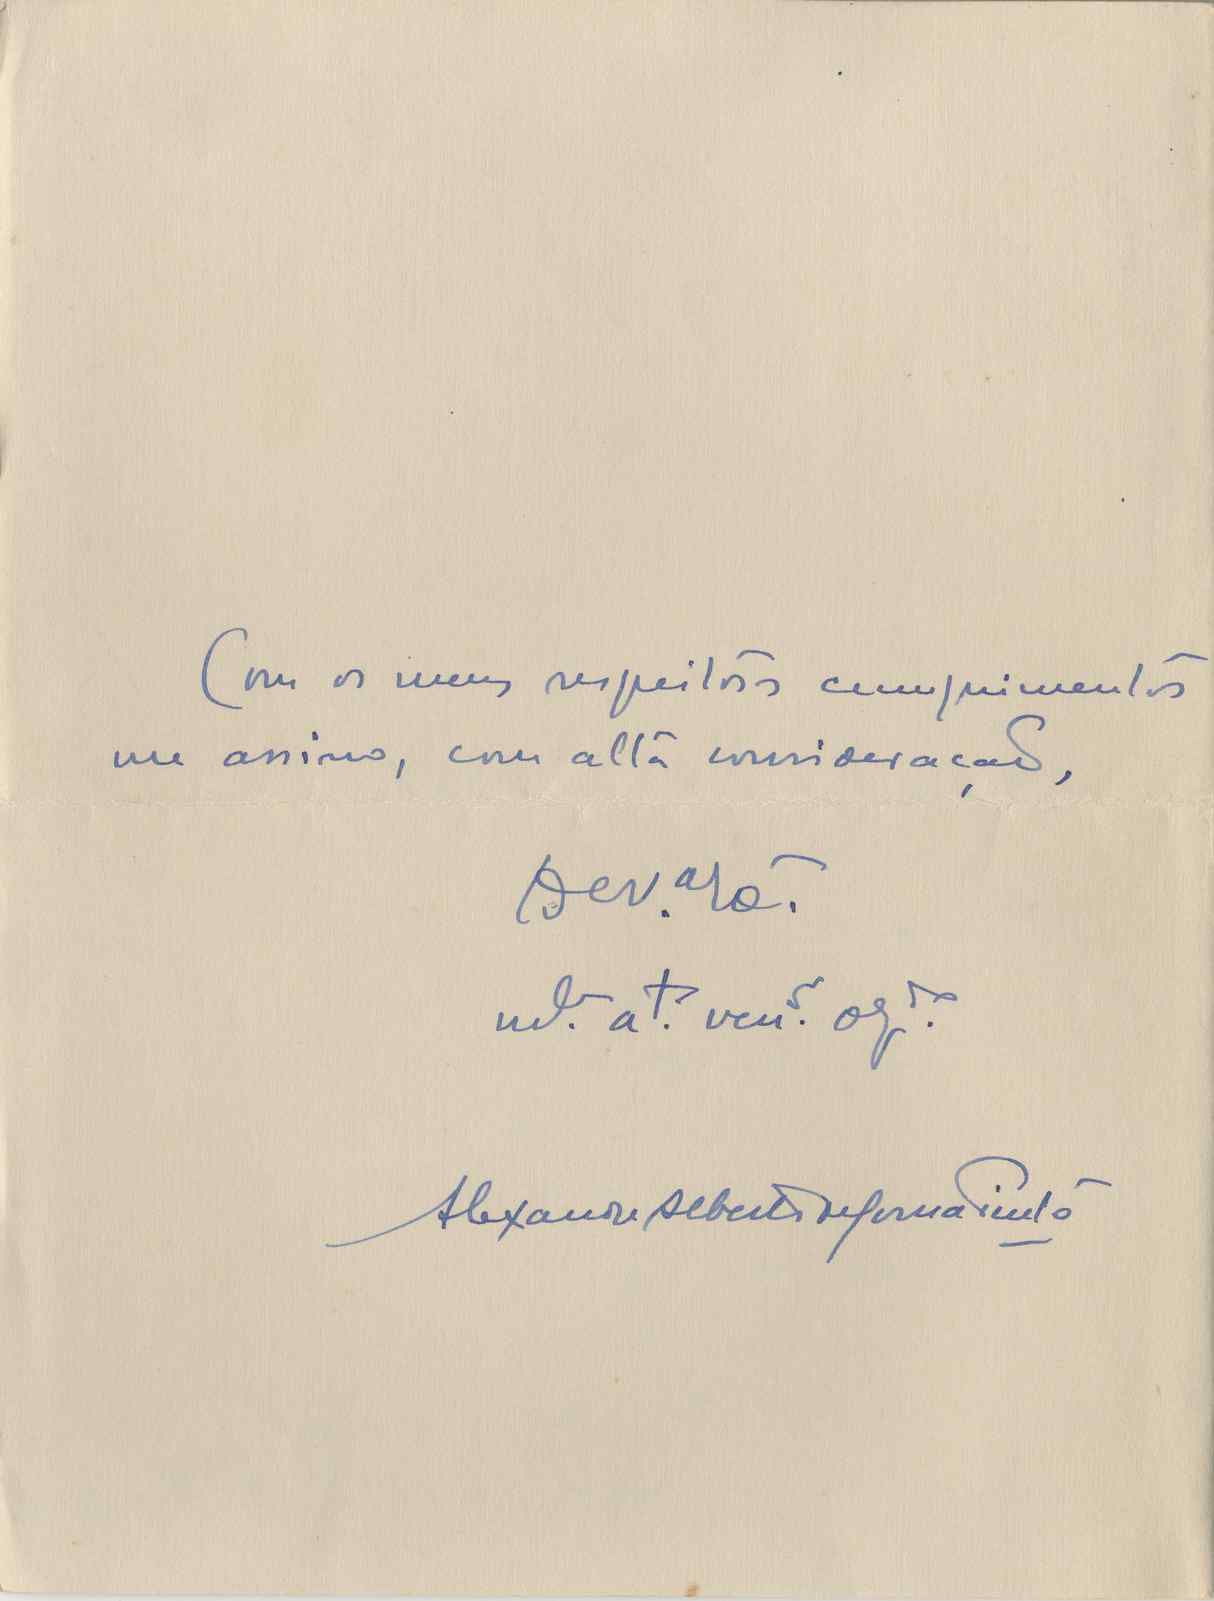 Com os meus respeitosos cumprimentos
me assino, com alta consideração,
de V. a
at. ven.
Alexandre Alberto de Sousa Pinto